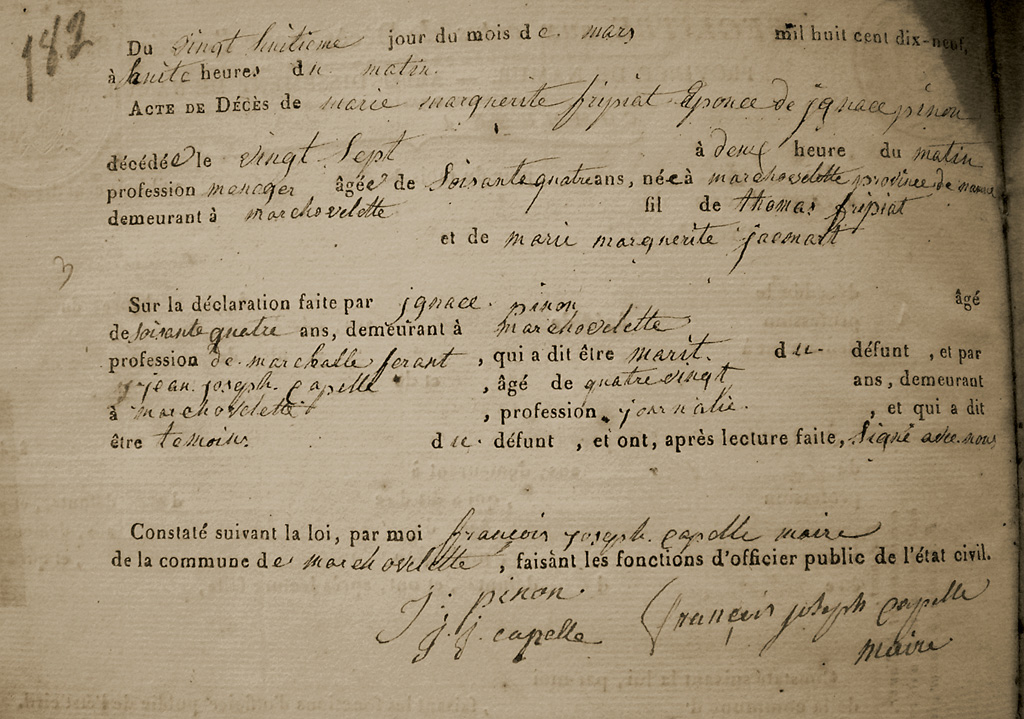 182
Du vingt huitieme jour du mois de mars mil huit cent dix-neuf,
à huite heures du matin.
ACTE DE DÉCÈS de marie marguerite fripiat Eponce de jgnace pinon
décédée le vingt Sept à deux heure du matin
profession menager âgée de Soisante quatre ans, née à marchovelette province de namur
demeurant à marchovelette fil de thomas fripiat
et de marie marguerite jacmart
Sur la déclaration faite par jgnace pinon âgé
de soisante quatre ans, demeurant à marchovelette
profession de marchalle ferant , qui a dit être marit. du défunt , et par
jean joseph capelle , âgé de quatre vingt ans, demeurant
à marchovelette , profession journalie. , et qui a dit
être temoins du défunt , et ont, après lecture faite, Signé avec nous
Constaté suivant la loi, par moi françois joseph capelle maire
de la commune de marchovelette , faisant les fonctions d'officier public de l'état civil.
J: pinon.
j. j. capelle françois joseph capelle
maire